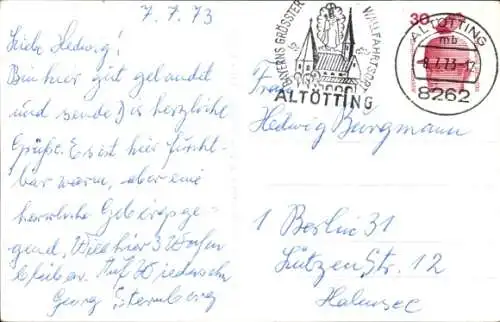 7.7.73
Liebe Hedwig!
Bin hier gut gelandet
und sende Dir herzliche
Grüße. Es ist hier furcht-
bar warm, aber eine
herrliche Gebirgsge-
gend. Will hier 3 Wochen
bleiben. Auf Wiedersehn
Georg Sternberg
BAYERNS GRÖSSTER WALLFAHRTSORT
ALTÖTTING
30
ALTÖTTING
mb
8.7.73-12
8262
Frau
Hedwig Burgmann
1 Berlin 31
Lützenstr. 12
Halensee